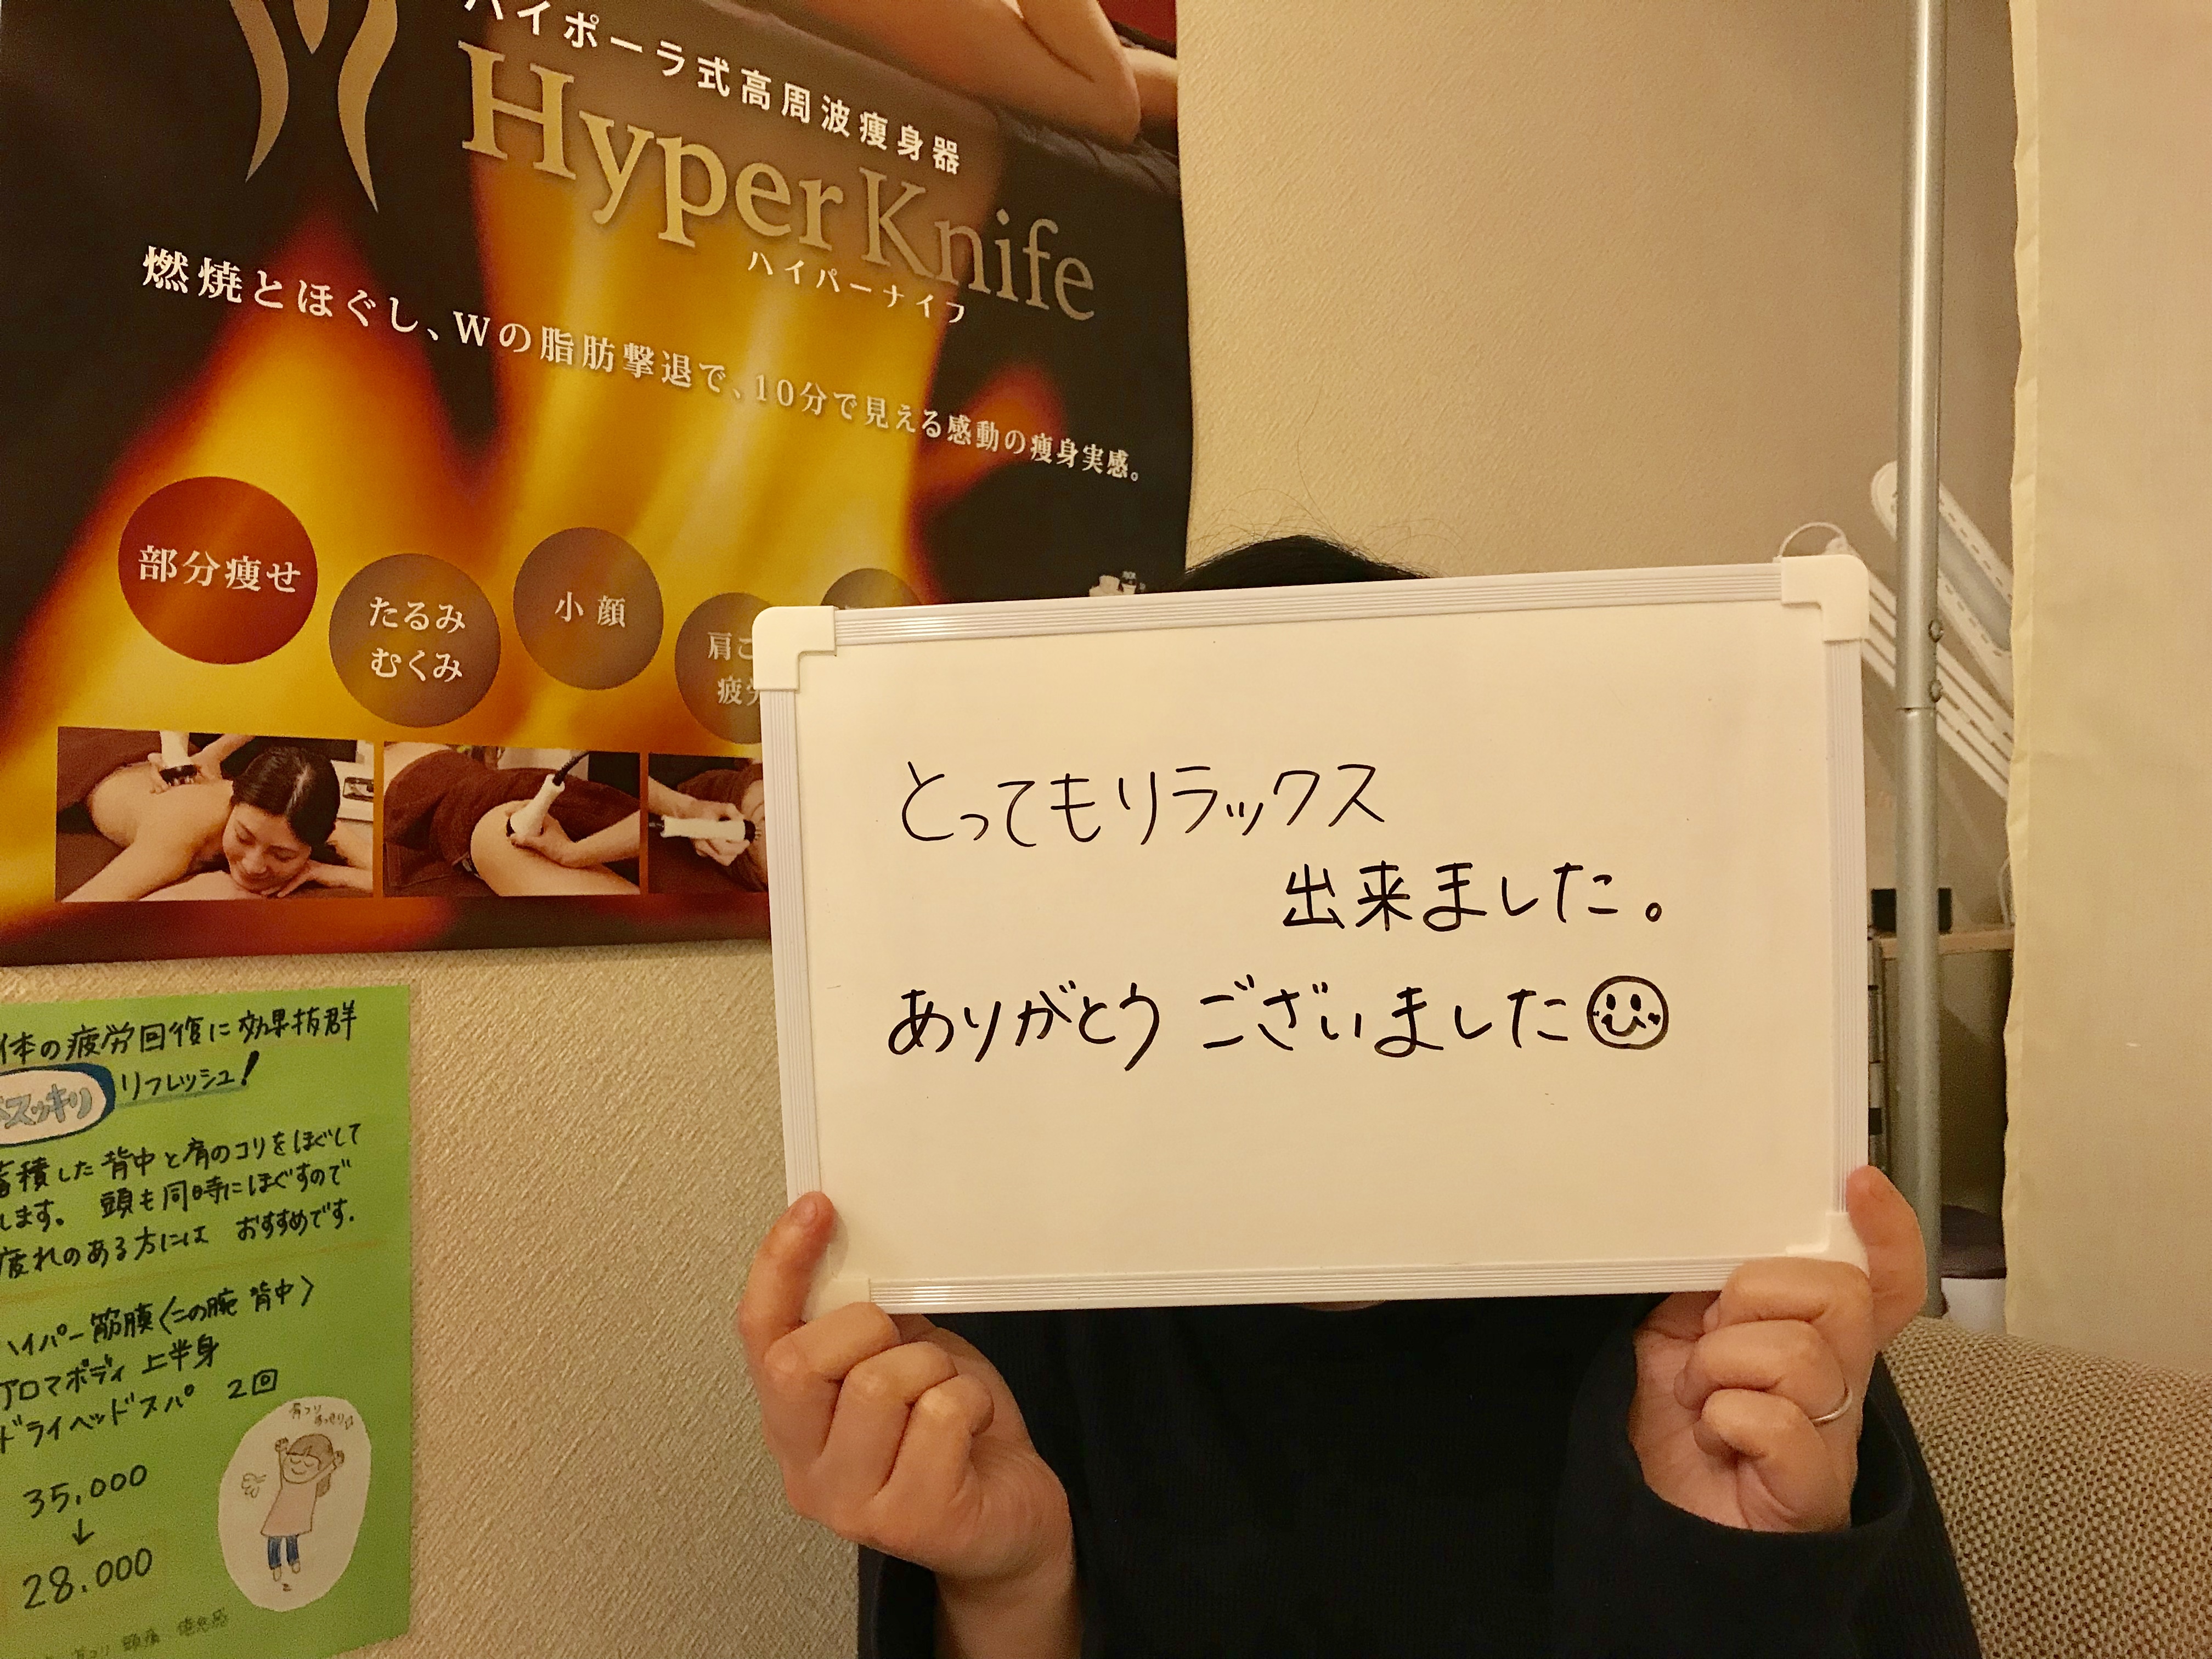 イポーラ式高周波痩身器
Hyper Knife
ハイパーナイフ
燃焼とほぐし、Wの脂肪撃退で、10分で見える感動の痩身実感。
部分痩せ
たるみ
むくみ
小顔
肩こ
疲労
とってもリラックス
出来ました。
ありがとうございました
体の疲労回復に効果抜群
スッキリ リフレッシュ!
蓄積した背中と肩のコリをほぐして
します。 頭も同時にほぐすので
疲れのある方には おすすめです.
ハイパー筋膜〈二の腕 背中〉
アロマボディ 上半身
ドライヘッドスパ 2回
35,000
↓
28.000